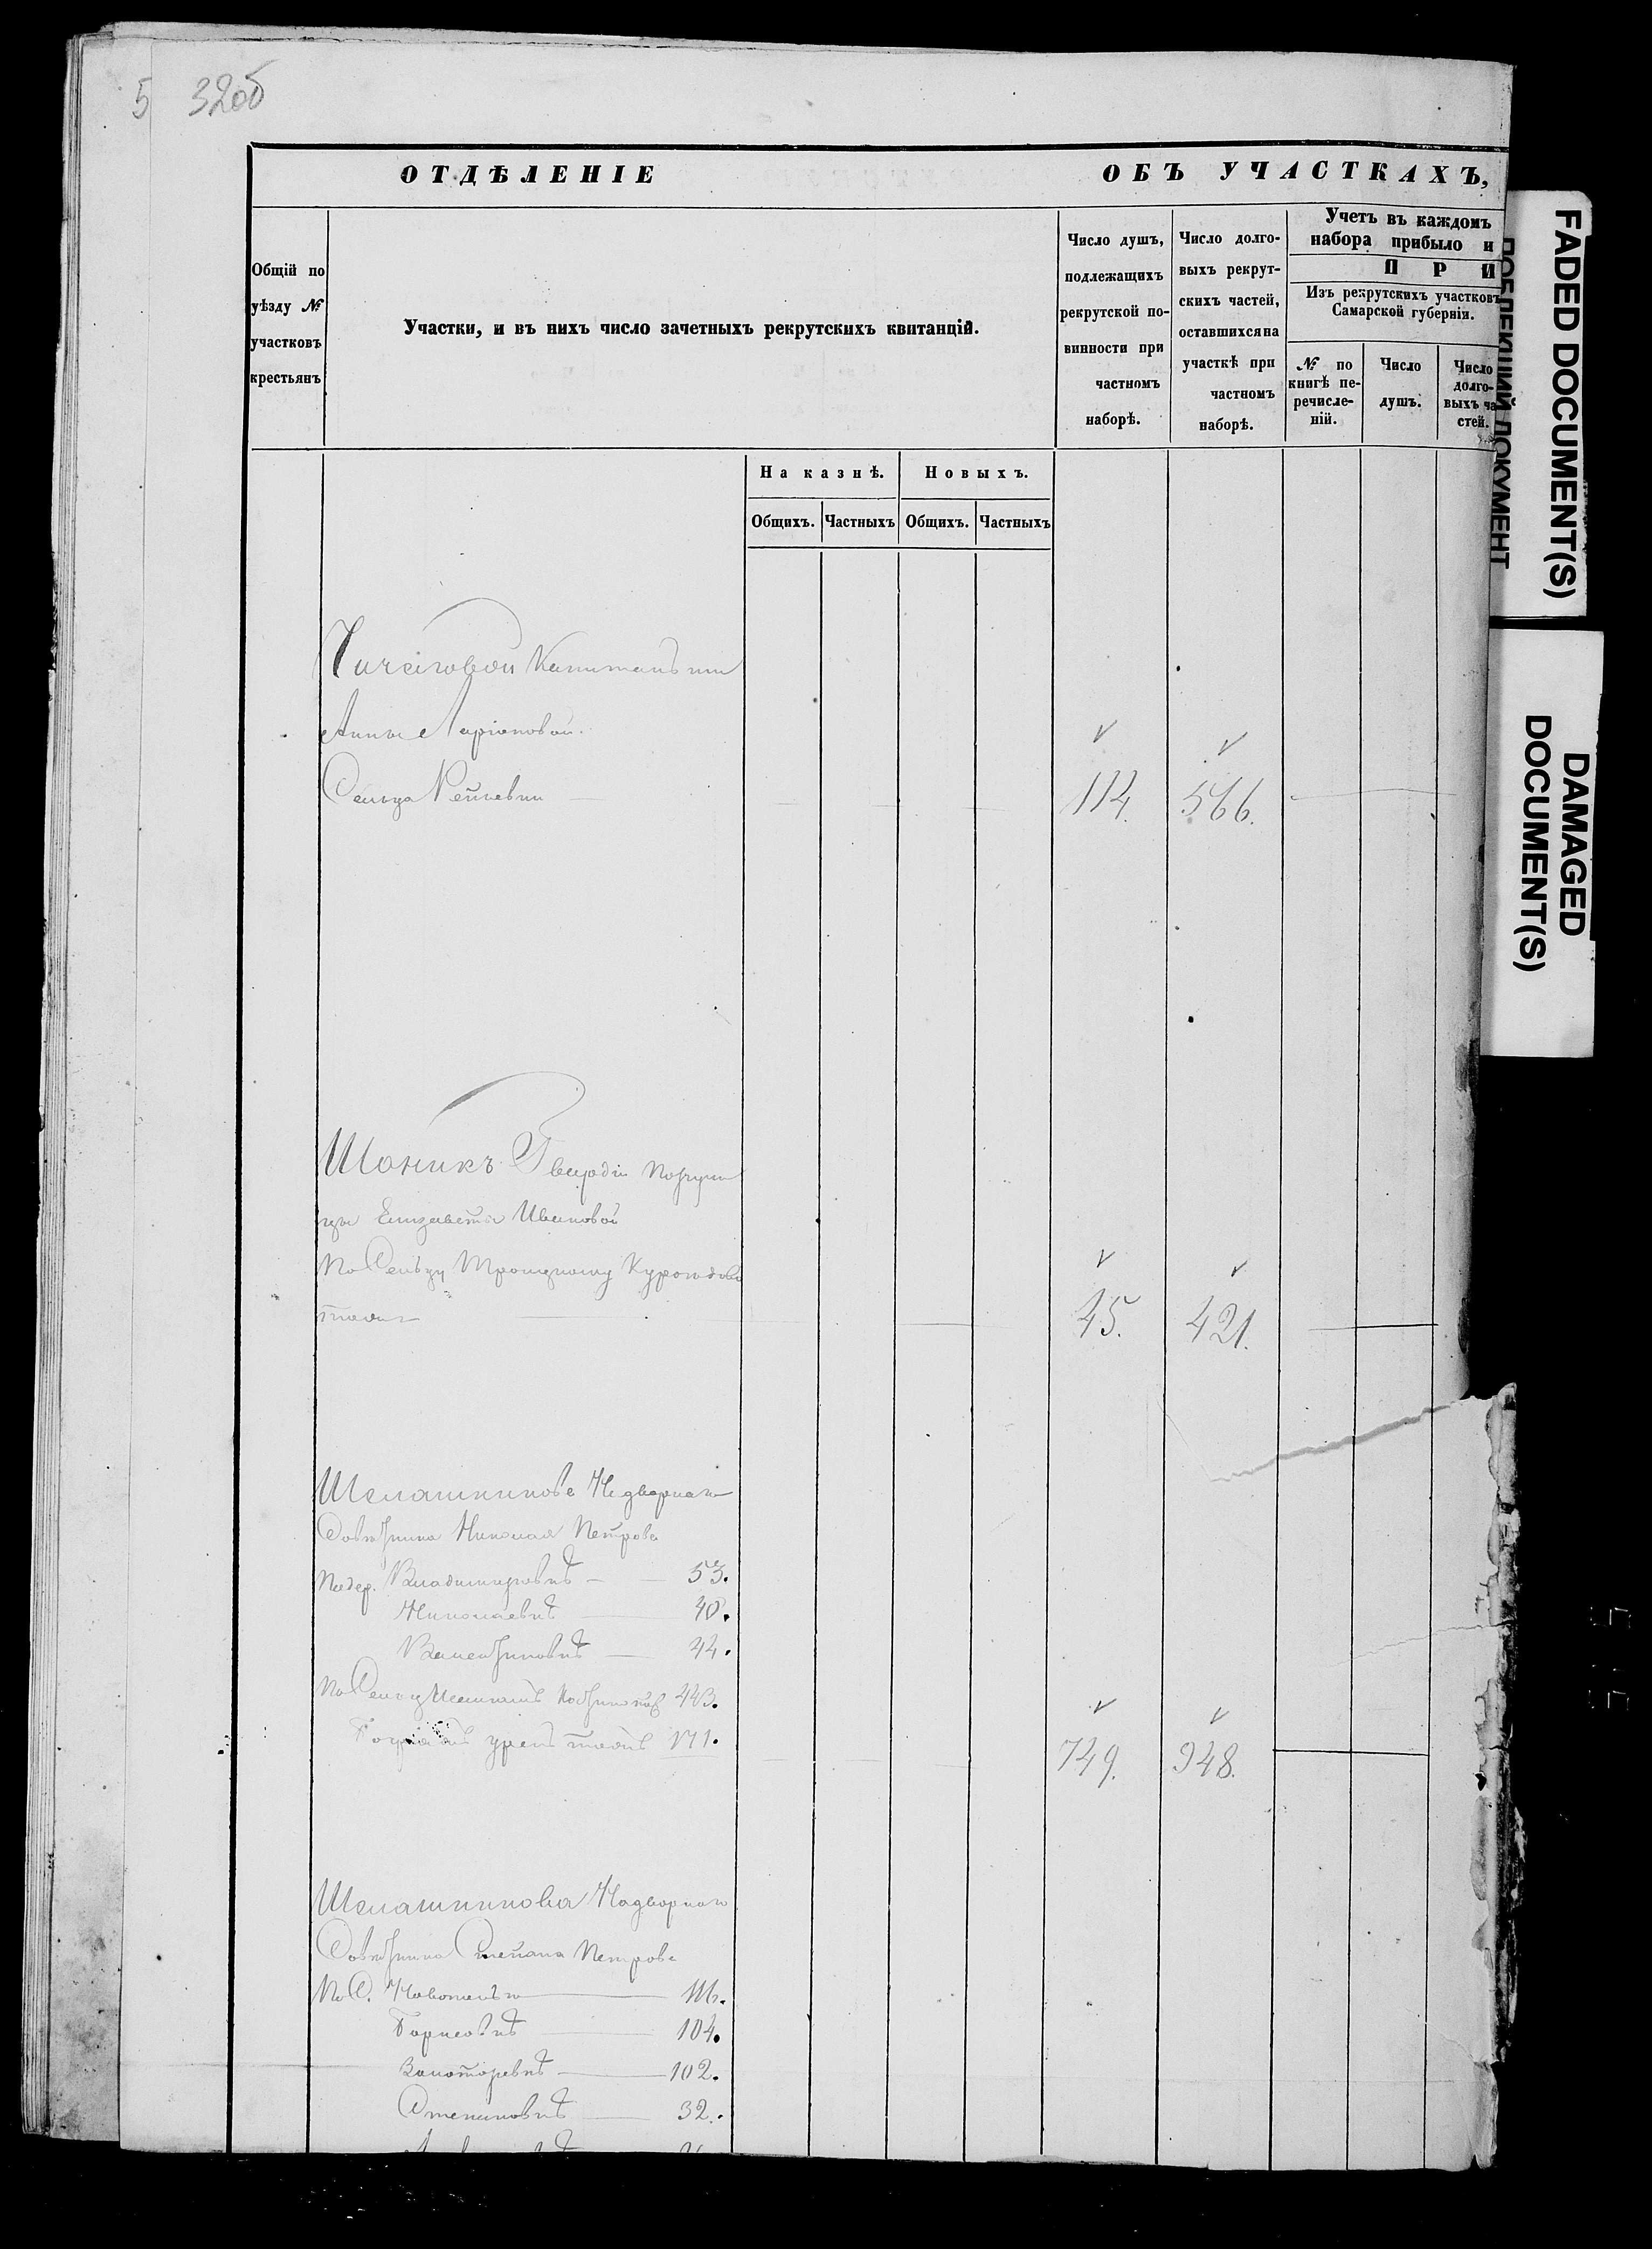 5 320б
ОТДѢЛЕНІЕ ОБЪ УЧАСТКАХЪ,
Общій по уѣзду № участковъ крестьянъ
Участки, и въ нихъ число зачетныхъ рекрутскихъ квитанцій.
Число душъ, подлежащихъ рекрутской повинности при частномъ наборѣ.
Число долговыхъ рекрутскихъ частей, оставшихся на участкѣ при частномъ наборѣ.
Учетъ въ каждомъ
набора прибыло и
П Р И
Изъ рекрутскихъ участковъ
Самарской губерніи.
№ по книгѣ перечисленій.
Число душъ.
Число долговыхъ частей.
На казнѣ. Новыхъ.
Общихъ. Частныхъ Общихъ. Частныхъ
Капитанши
Анны Ларіоновой.
Сельца 114. 566.
Гвардіи Поручи
цы Елизаветы Ивановой
По Сельцу Троицкому Куроѣдово
тожъ 45. 421.
Шелашникова Надворнаго
Совѣтника Николая Петрова
По дер. Владиміровкѣ 53.
Николаевкѣ 40.
Валентиновкѣ 44.
По Сельцу 443.
тожъ 171. 749. 948.
Шелашникова Надворнаго
Совѣтника Степана Петрова
По С. 116.
Борисовкѣ 104.
102.
Степановкѣ 32.
FADED DOCUMENT(S)
ДОКУМЕНТ
DAMAGED
DOCUMENT(S)